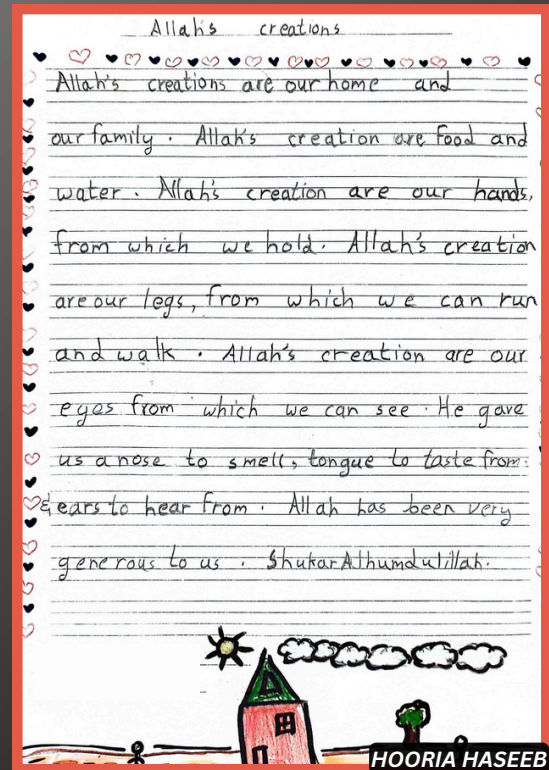 Allah's creations
Allah's creations are our home and
our family. Allah's creation are food and
water. Allah's creation are our hands,
from which we hold. Allah's creation
are our legs, from which we can run
and walk. Allah's creation are our
eyes from which we can see. He gave
us a nose to smell, tongue to taste from.
& ears to hear from. Allah has been very
generous to us. Shukar Alhumdulillah.
HOORIA HASEEB